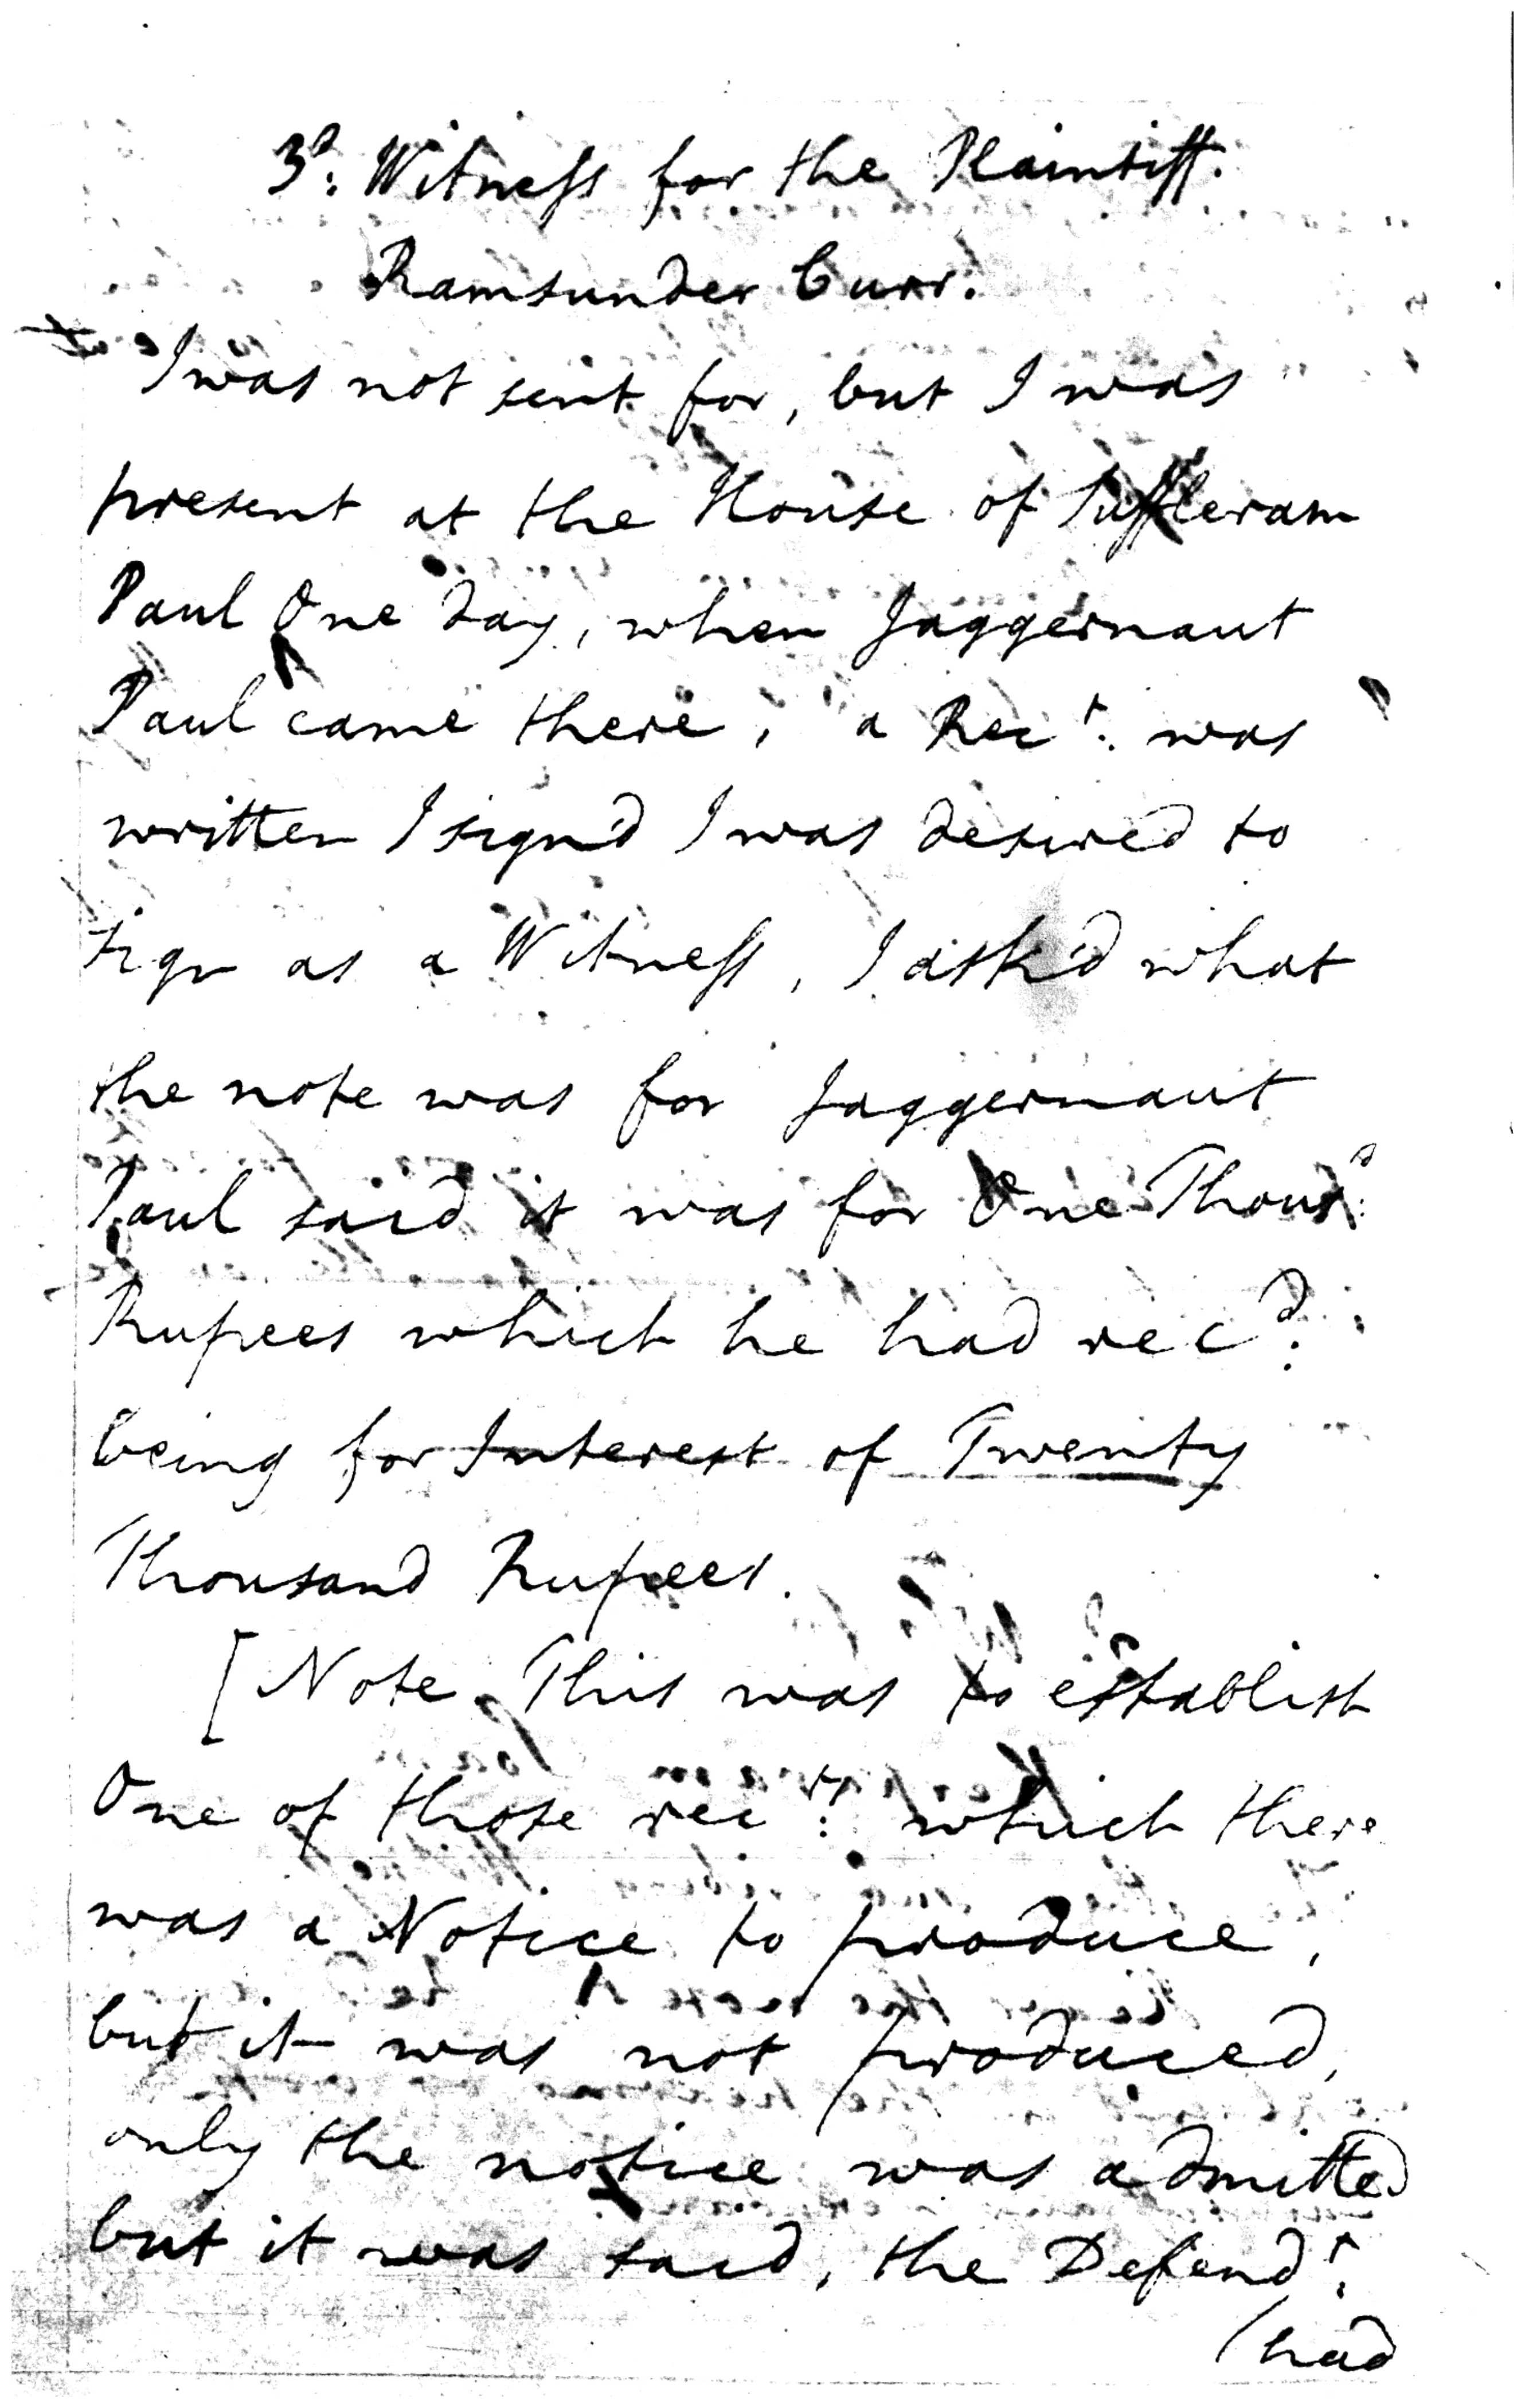 3d: Witness for the Plaintiff.
Ramsunder Curr.
I was not sent for, but I was
present at the House of
Paul One day, when Jaggernaut
Paul came there, a Rect: was
written I sign'd I was desired to
sign as a Witness, I ask'd what
the note was for Jaggernaut
Paul said it was for One Thousd:
Rupees which he had recd:
being for Interest of Twenty
Thousand Rupees.
[Note This was to establish
One of those rects: which there
was a Notice to produce,
but it was not produced,
only the notice was admitted
but it was said, the Defendt:
(had